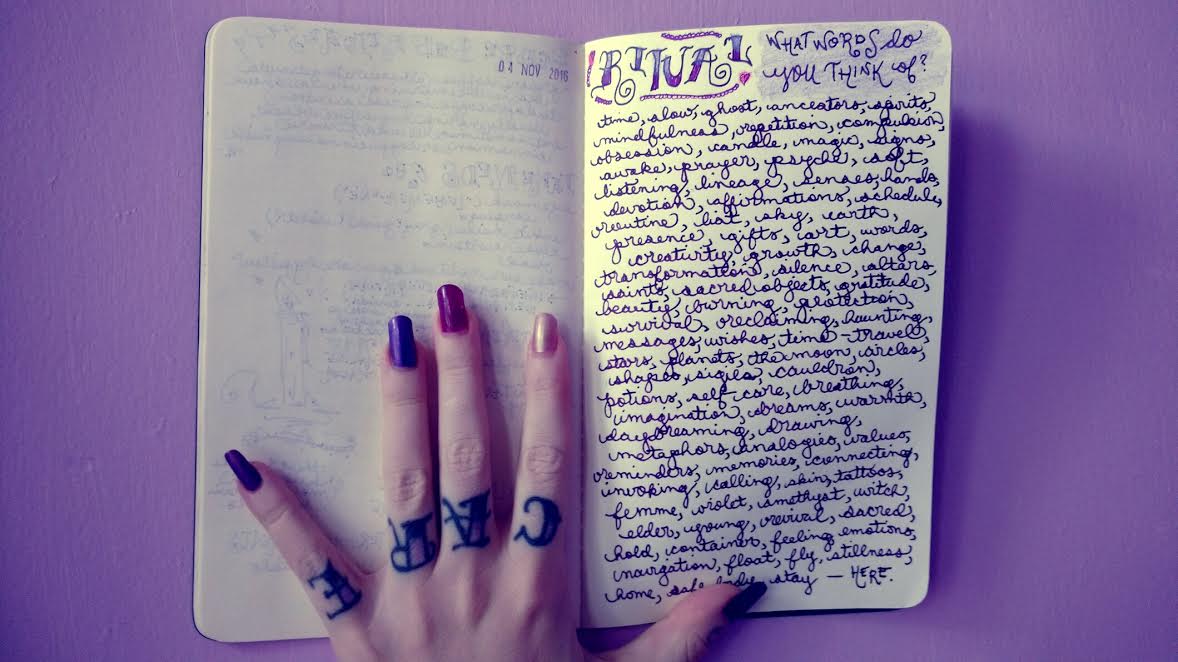 04 NOV 2016
RITUAL
WHAT WORDS do
YOU THINK of?
time, slow, ghost, ancestors, spirits,
mindfulness, repetition, compulsion,
obsession, candle, magic, signs,
awake, prayer, psyche, soft,
listening, lineage, senses, hands,
devotion, affirmations, schedule,
routine, list, sky, earth,
presence, gifts, art, words,
creativity, growth, change,
transformation, silence, altars,
saints, sacred objects, gratitude,
beauty, burning, protection,
survival, reclaiming, haunting,
messages, wishes, time-travel,
stars, planets, the moon, circles,
shapes, sigils, cauldron,
potions, self care, breathing,
imagination, dreams, warmth,
daydreaming, drawing,
metaphors, analogies, values,
reminders, memories, connecting,
invoking, calling, skin, tattoos,
femme, violet, amethyst, witch,
elder, young, revival, sacred,
hold, container, feeling, emotions,
navigation, float, fly, stillness,
home, safe, body, stay — HERE.
CARE